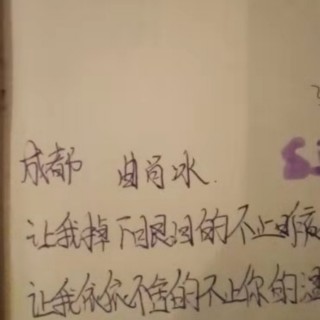 成都 曲肖冰.
让我掉下眼泪的不止昨夜
让我依依不舍的不止你的温